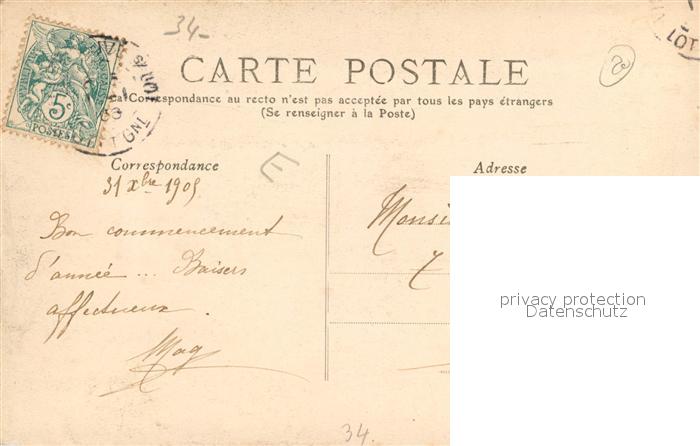 34-
LOT
CARTE POSTALE
La Correspondance au recto n'est pas acceptée par tous les pays étrangers
(Se renseigner à la Poste)
5c
POSTES
Correspondance
31 Xbre 1905
Bon commencement
d'année ... Baisers
affectueux.
Mag
34.
Adresse
7
privacy protection
Datenschutz